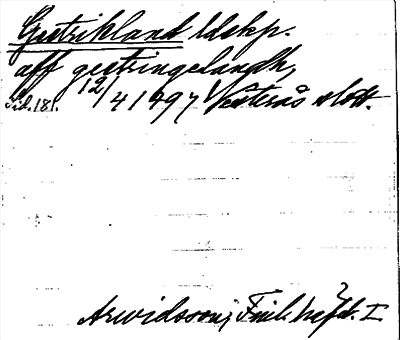 Gestrikland ldskp.
aff gestringelandh,
Sid. 181. 12/4 1497 Vesterås slott.
Arwidsson, Finl. hafd. I